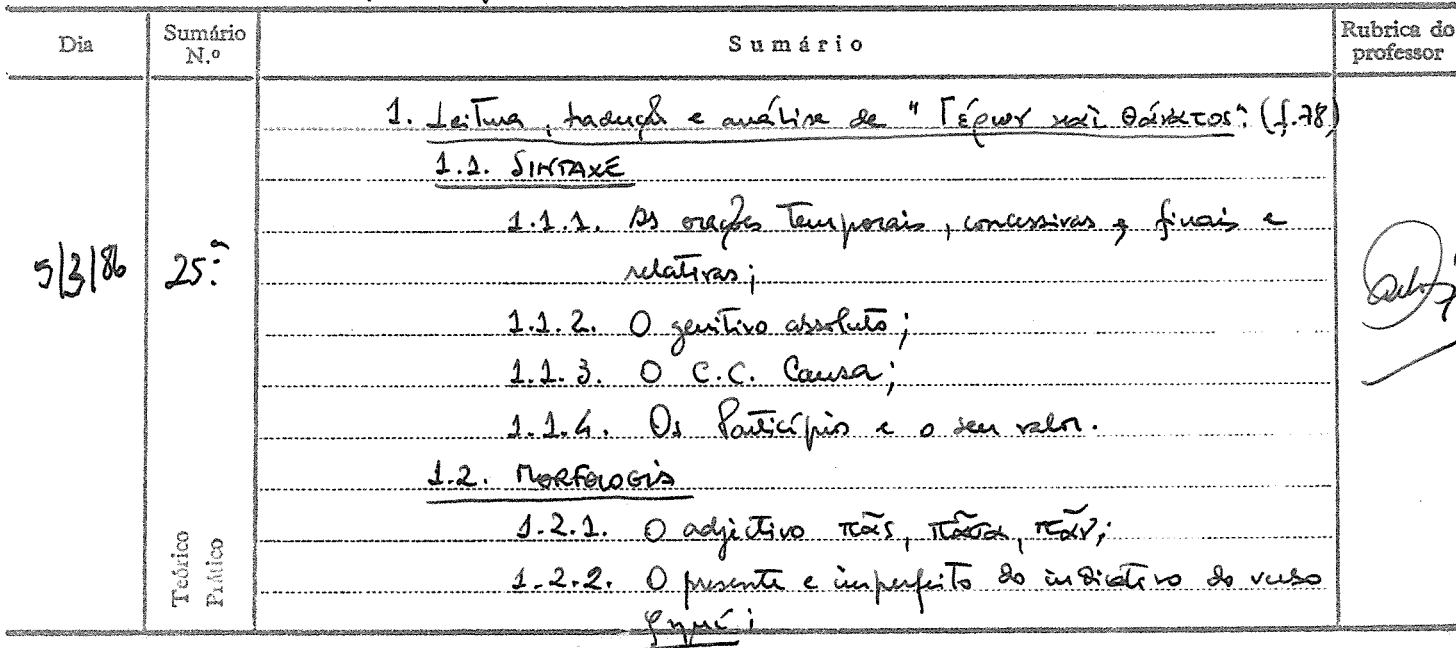 Dia
Sumário N.º
Sumário
Rubrica do professor
5/3/86
25.ª
Teórico
Prático
1. Leitura, tradução e análise de "Γέρων καὶ Θάνατος". (f. 78)
1.1. SINTAXE
1.1.1. As orações temporais, concessivas, finais e
relativas;
1.1.2. O genitivo absoluto;
1.1.3. O C.C. Causa;
1.1.4. Os Particípios e o seu valor.
1.2. MORFOLOGIA
1.2.1. O adjectivo πᾶς, πᾶσα, πᾶν;
1.2.2. O presente e imperfeito do indicativo do verbo
φημί;